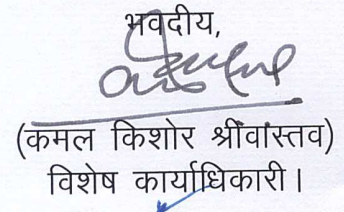 भवदीय,
(कमल किशोर श्रीवास्तव)
विशेष कार्याधिकारी।